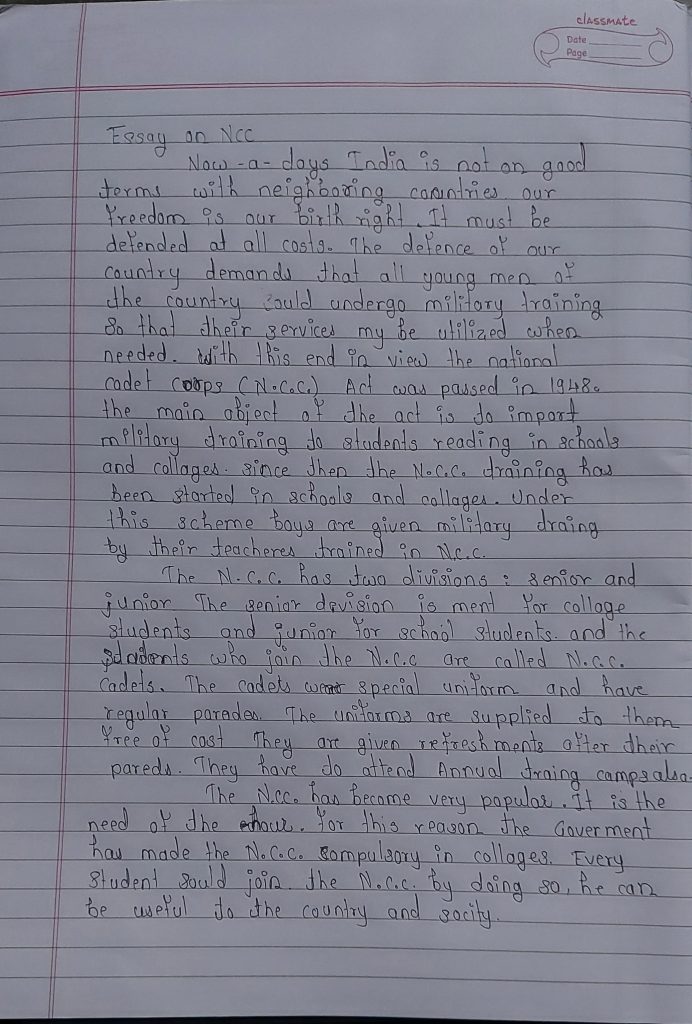 classmate
Date
Page
Essay on NCC
Now-a-days India is not on good
terms with neighboring countries our
freedom is our birth right. It must be
defended at all costs. The defence of our
country demands that all young men of
the country sould undergo military training
so that their services my be utilized when
needed. With this end in view the national
cadet corps (N.C.C.) Act was passed in 1948.
the main object of the act is to impart
military training to students reading in schools
and collages. since then the N.C.C. training has
been started in schools and collages. Under
this scheme boys are given military draing
by their teacheres trained in N.C.C.
The N.C.C. has two divisions : senior and
junior The senior devision is ment for collage
students and junior for school students. and the
students who join the N.C.C are called N.C.C.
Cadets. The cadets wear special uniform and have
regular parades. The uniforms are supplied to them
free of cost They are given refreshments after their
pareds. They have to attend Annual traing camps also.
The N.CC. has become very popular. It is the
need of the hour. for this reason the Goverment
has made the N.C.C. compulsory in collages. Every
student sould join the N.C.C. by doing so, he can
be useful to the country and socity.